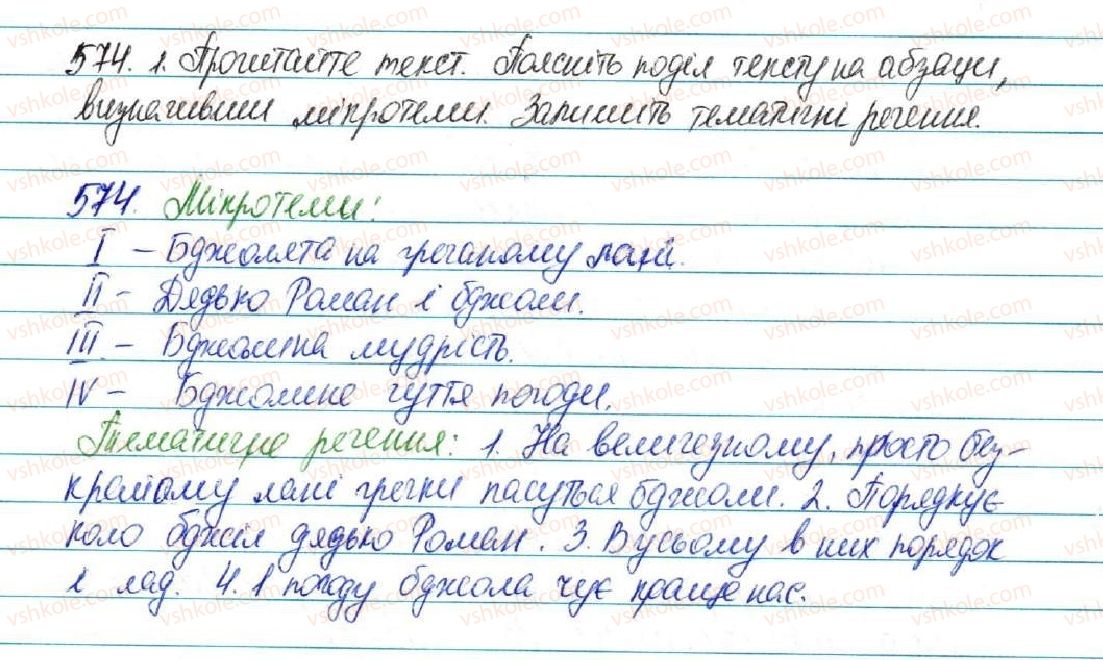 574. 1. Прочитайте текст. Поясніть поділ тексту на абзаци,
визначивши мікротеми. Запишіть тематичні речення.
574. Мікротеми:
I – Бджолята на гречаному лані.
II – Дядько Роман і бджоли.
III – Бджолина мудрість.
IV – Бджолине чуття погоди.
Тематичне речення: 1. На величезному, просто без-
крайому лані гречки пасуться бджоли. 2. Порядкує
коло бджіл дядько Роман. 3. В усьому в них порядок
і лад. 4. І погоду бджола чує краще нас.